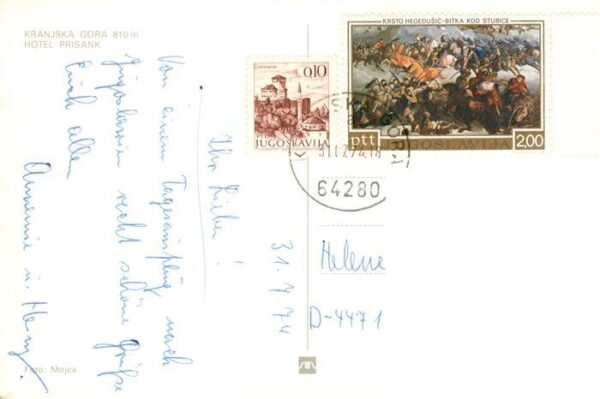 KRANJSKA GORA 810 m
HOTEL PRISANK
Ihr Lieben!
Von einem Tagesausflug nach
Jugoslawien recht schöne Grüße
Euch allen
Annemie u. Heinz.
31.7.74
Helene
D-4471
0,10
JUGOSLAVIJA
KRSTO HEGEDUŠIĆ - BITKA KOD STUBICE
ptt
JUGOSLAVIJA
2,00
64280
Foto: Mojca